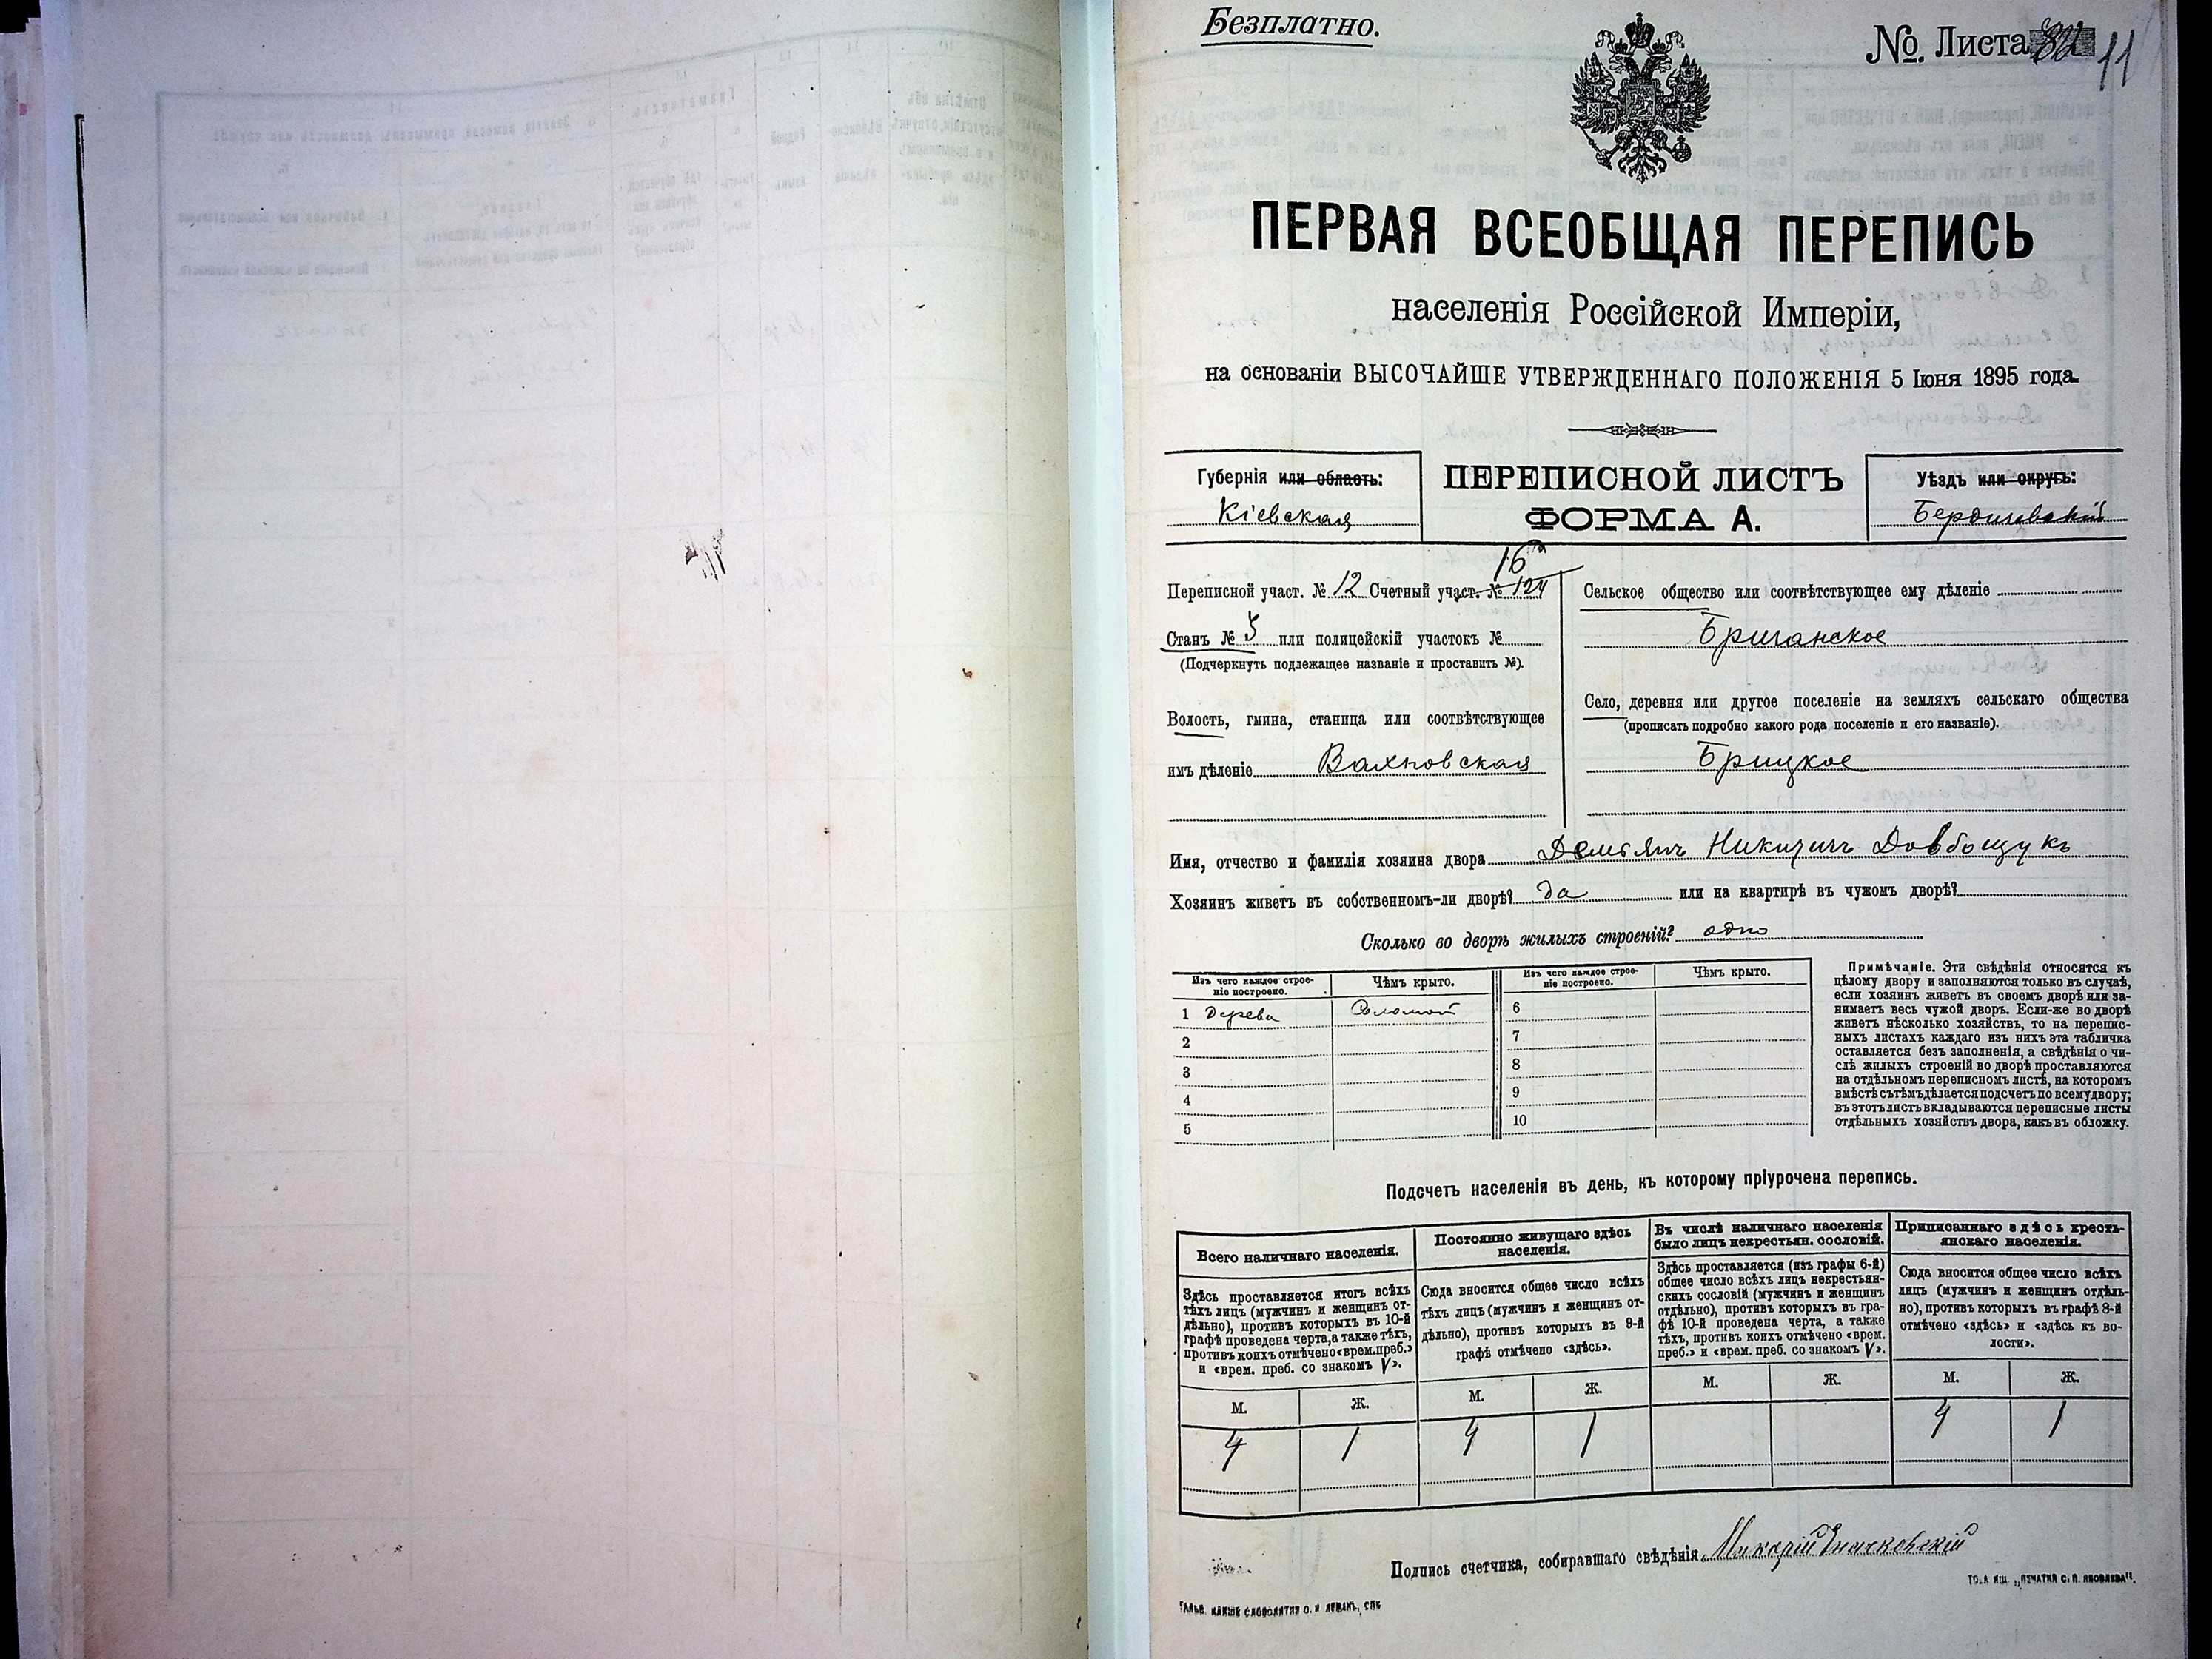 Безплатно.
№ Листа 11
ПЕРВАЯ ВСЕОБЩАЯ ПЕРЕПИСЬ
населенія Россійской Имперіи,
на основаніи ВЫСОЧАЙШЕ УТВЕРЖДЕННАГО ПОЛОЖЕНІЯ 5 Іюня 1895 года.
Губернія или область:
Кіевская
ПЕРЕПИСНОЙ ЛИСТЪ
ФОРМА А.
Уѣздъ или округъ:
Бердичевскій
16
Переписной участ. № 12 Счетный участ. № 124
Станъ № 5 или полицейскій участокъ №
(Подчеркнуть подлежащее названіе и проставить №).
Волость, гмина, станица или соотвѣтствующее
имъ дѣленіе Вахновская
Сельское общество или соотвѣтствующее ему дѣленіе
Село, деревня или другое поселеніе на земляхъ сельскаго общества
(прописать подробно какого рода поселеніе и его названіе).
Брицкое
Имя, отчество и фамилія хозяина двора Демьянъ Никитинъ Довбощукъ
Хозяинъ живетъ въ собственномъ-ли дворѣ? да или на квартирѣ въ чужомъ дворѣ?
Сколько во дворѣ жилыхъ строеній? одно
Изъ чего каждое строе-
ніе построено.
Чѣмъ крыто.
Изъ чего каждое строе-
ніе построено.
Чѣмъ крыто.
1 Дерева Соломой 6
2 7
3 8
4 9
5 10
Примѣчаніе. Эти свѣдѣнія относятся къ
цѣлому двору и заполняются только въ случаѣ,
если хозяинъ живетъ въ своемъ дворѣ или за-
нимаетъ весь чужой дворъ. Если-же во дворѣ
живетъ нѣсколько хозяйствъ, то на перепис-
ныхъ листахъ каждаго изъ нихъ эта табличка
оставляется безъ заполненія, а свѣдѣнія о чи-
слѣ жилыхъ строеній во дворѣ проставляются
на отдѣльномъ переписномъ листѣ, на которомъ
вмѣстѣ съ тѣмъ дѣлается подсчетъ по всему двору;
въ этотъ листъ вкладываются переписные листы
отдѣльныхъ хозяйствъ двора, какъ въ обложку.
Подсчетъ населенія въ день, къ которому пріурочена перепись.
Всего наличнаго населенія.
Здѣсь проставляется итогъ всѣхъ
тѣхъ лицъ (мужчинъ и женщинъ от-
дѣльно), противъ которыхъ въ 10-й
графѣ проведена черта, а также тѣхъ,
противъ коихъ отмѣчено «врем. преб.»
и «врем. преб. со знакомъ V».
М. Ж.
4 1
Постоянно живущаго здѣсь
населенія.
Сюда вносится общее число всѣхъ
тѣхъ лицъ (мужчинъ и женщинъ от-
дѣльно), противъ которыхъ въ 9-й
графѣ отмѣчено «здѣсь».
М. Ж.
4 1
Въ числѣ наличнаго населенія
было лицъ некрестьян. сословій.
Здѣсь проставляется (изъ графы 6-й)
общее число всѣхъ лицъ некрестьян-
скихъ сословій (мужчинъ и женщинъ
отдѣльно), противъ которыхъ въ гра-
фѣ 10-й проведена черта, а также
тѣхъ, противъ коихъ отмѣчено «врем.
преб.» и «врем. преб. со знакомъ V».
М. Ж.
Приписаннаго здѣсь кресть-
янскаго населенія.
Сюда вносится общее число всѣхъ
лицъ (мужчинъ и женщинъ отдѣль-
но), противъ которыхъ въ графѣ 8-й
отмѣчено «здѣсь» и «здѣсь къ во-
лости».
М. Ж.
4 1
Подпись счетчика, собиравшаго свѣдѣнія